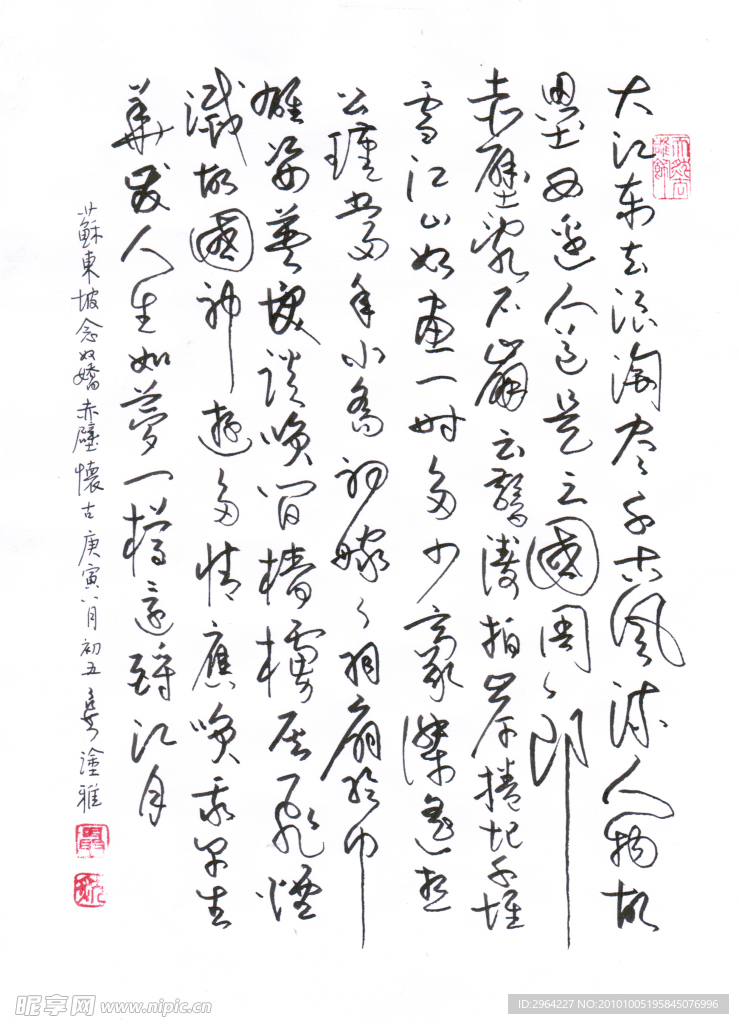 大江東去浪淘尽千古風流人物故
壘西邊人道是三國周郎
赤壁亂石崩雲驚濤拍岸捲起千堆
雪江山如畫一時多少豪傑遙想
公瑾當年小喬初嫁了羽扇綸巾
雄姿英發談笑間檣櫓灰飛煙
滅故國神遊多情應笑我早生
華髮人生如夢一樽還酹江月
蘇東坡念奴嬌赤壁懷古庚寅八月初五塗雅
昵享网 www.nipic.cn
ID:2964227 NO:20101005195845076996